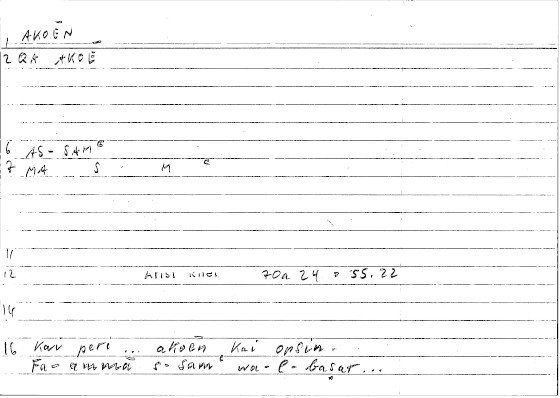 1 AKOĒN
2 QA AKOĒ
6 AS-SAMᶜ
7 MA S M ᶜ
11
12 70a 24 = 55.22
14
16 Kai peri ... akoēn kai opsin.
Fa-ammā s-samᶜ wa-l-baṣar...